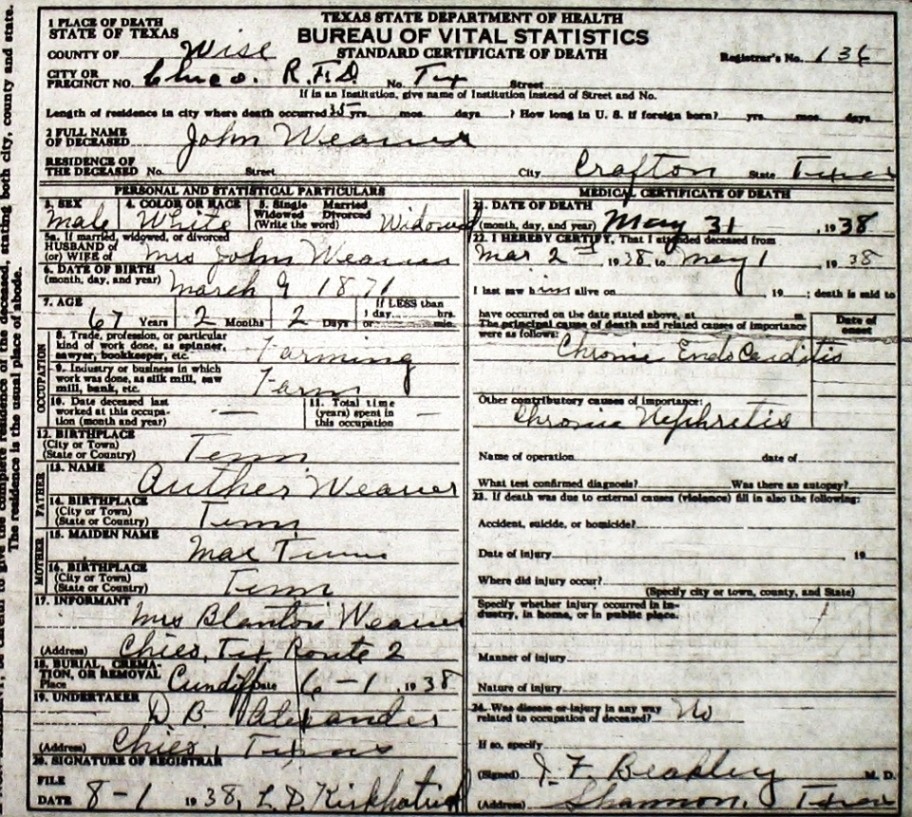 TEXAS STATE DEPARTMENT OF HEALTH
BUREAU OF VITAL STATISTICS
STANDARD CERTIFICATE OF DEATH
1 PLACE OF DEATH
STATE OF TEXAS
COUNTY OF Wise
Registrar's No. 136
CITY OR PRECINCT NO. Chico. R.F.D. No. Tex Street
If in an Institution, give name of Institution instead of Street and No.
Length of residence in city where death occurred 35 yrs. mos. days ? How long in U. S. if foreign born? yrs. mos. days
2 FULL NAME OF DECEASED John Weaver
RESIDENCE OF THE DECEASED No. Street City Crafton State Texas
PERSONAL AND STATISTICAL PARTICULARS
3. SEX Male
4. COLOR OR RACE White
5. Single Married Widowed Divorced (Write the word) Widowed
5a. If married, widowed, or divorced
HUSBAND of (or) WIFE of Mrs John Weaver
6. DATE OF BIRTH (month, day, and year) March 9 1871
7. AGE 67 Years 2 Months 2 Days
If LESS than 1 day hrs. or min.
OCCUPATION
8. Trade, profession, or particular kind of work done, as spinner, sawyer, bookkeeper, etc. Farming
9. Industry or business in which work was done, as silk mill, saw mill, bank, etc. Farm
10. Date deceased last worked at this occupation (month and year) —
11. Total time (years) spent in this occupation —
12. BIRTHPLACE (City or Town) (State or Country) Tenn
FATHER
13. NAME Auther Weaver
14. BIRTHPLACE (City or Town) (State or Country) Tenn
MOTHER
15. MAIDEN NAME Mae
16. BIRTHPLACE (City or Town) (State or Country) Tenn
17. INFORMANT Mrs Blanton Weaver
(Address) Chico, Tex Route 2
18. BURIAL, CREMATION, OR REMOVAL
Place Cundiff Date 6-1, 1938
19. UNDERTAKER D. B. Alexander
(Address) Chico, Texas
20. SIGNATURE OF REGISTRAR
FILE DATE 8-1 1938, L. D. Kirkpatrick
MEDICAL CERTIFICATE OF DEATH
21. DATE OF DEATH (month, day, and year) May 31, 1938
22. I HEREBY CERTIFY, That I attended deceased from
Mar 2nd, 1938, to May 1, 1938
I last saw him alive on 19 ; death is said to
have occurred on the date stated above, at m.
The principal cause of death and related causes of importance were as follows:
Date of onset
Chronic Endocarditis
Other contributory causes of importance:
Chronic Nephretis
Name of operation date of
What test confirmed diagnosis? Was there an autopsy?
23. If death was due to external causes (violence) fill in also the following:
Accident, suicide, or homicide?
Date of injury 19
Where did injury occur?
(Specify city or town, county, and State)
Specify whether injury occurred in industry, in home, or in public place.
Manner of injury
Nature of injury
24. Was disease or injury in any way related to occupation of deceased? No
If so, specify
(Signed) J. F. Beakley M. D.
(Address) Shannon, Texas
stating both city, county and state.
The residence is the usual place of abode.